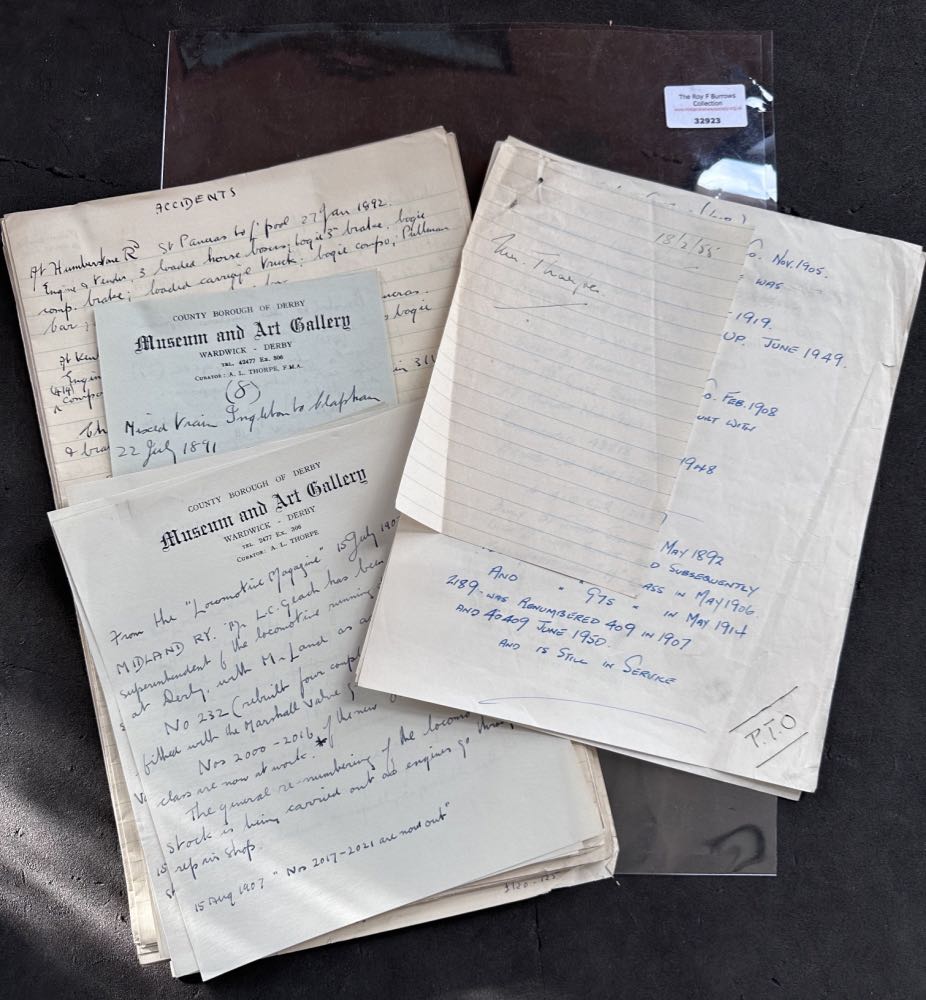 The Roy F Burrows
Collection
32923
ACCIDENTS
At Humberstone Rd St Pancras to L'pool 27 Jan 1892.
Engine & tender; 3 loaded horse boxes; bogie 3rd brake, bogie
comp. brake; loaded carriage truck; bogie compo, Pullman
bar
bogie
At
COUNTY BOROUGH OF DERBY
Museum and Art Gallery
WARDWICK - DERBY
TEL. 42477 Ex. 306
CURATOR: A. L. THORPE, F.M.A.
(8)
Mixed train Ingleton to Clapham
22 July 1891
COUNTY BOROUGH OF DERBY
Museum and Art Gallery
WARDWICK - DERBY
TEL. 2477 Ex. 306
CURATOR: A. L. THORPE
From the "Locomotive Magazine" 15 July 190
MIDLAND RY. Mr L.C. Geach has been
superintendent of the locomotive running
at Derby, with M. Lund as a
No 232 (rebuilt four coupl
fitted with the Marshall Valve
Nos 2000-2016 of the new
class are now at work.
The general re-numbering of the locomo
stock is being carried out as engines go thro
repair shop.
15 Aug 1907 "Nos 2017-2021 are now out"
18/2/55
O. NOV. 1905.
WAS
1919.
UP. JUNE 1949.
O. FEB. 1908
UILT WITH
1948
MAY 1892
D SUBSEQUENTLY
ASS IN MAY 1906.
AND " 975 " IN MAY 1914
2189 - WAS RENUMBERED 409 IN 1907
AND 40409 JUNE 1950.
AND IS STILL IN SERVICE
P.T.O